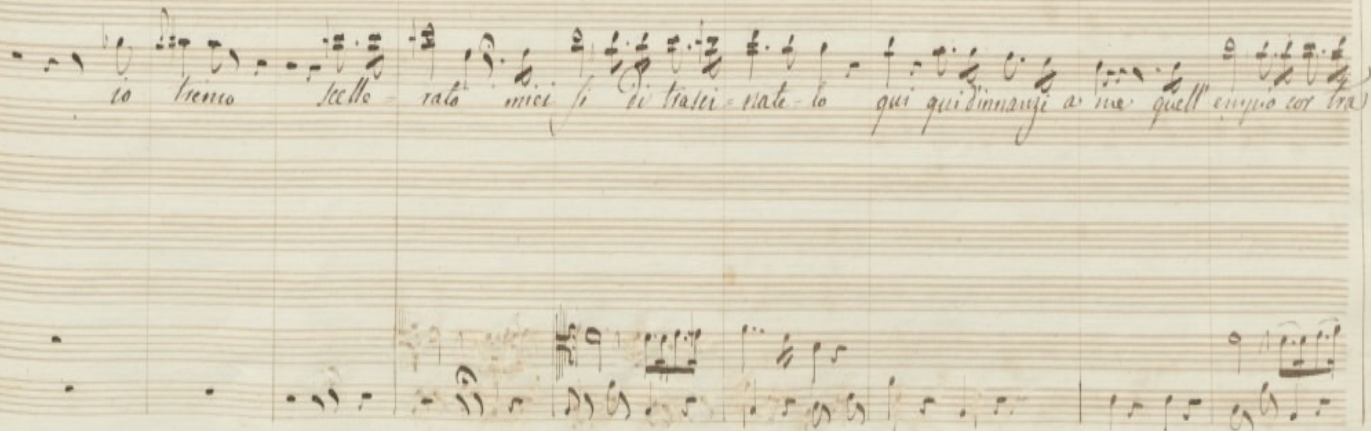 io tremo scelle - rato miei fi di trasci - nate - lo qui qui dinnanzi a me quell' empio cor tra